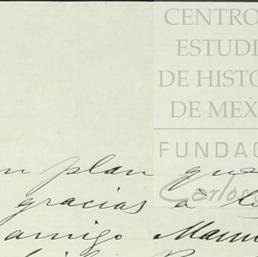 CENTRO
ESTUDI
DE HISTO
DE MEX
FUNDAC
Carlos
n plan que
gracias a l
amigo Manu